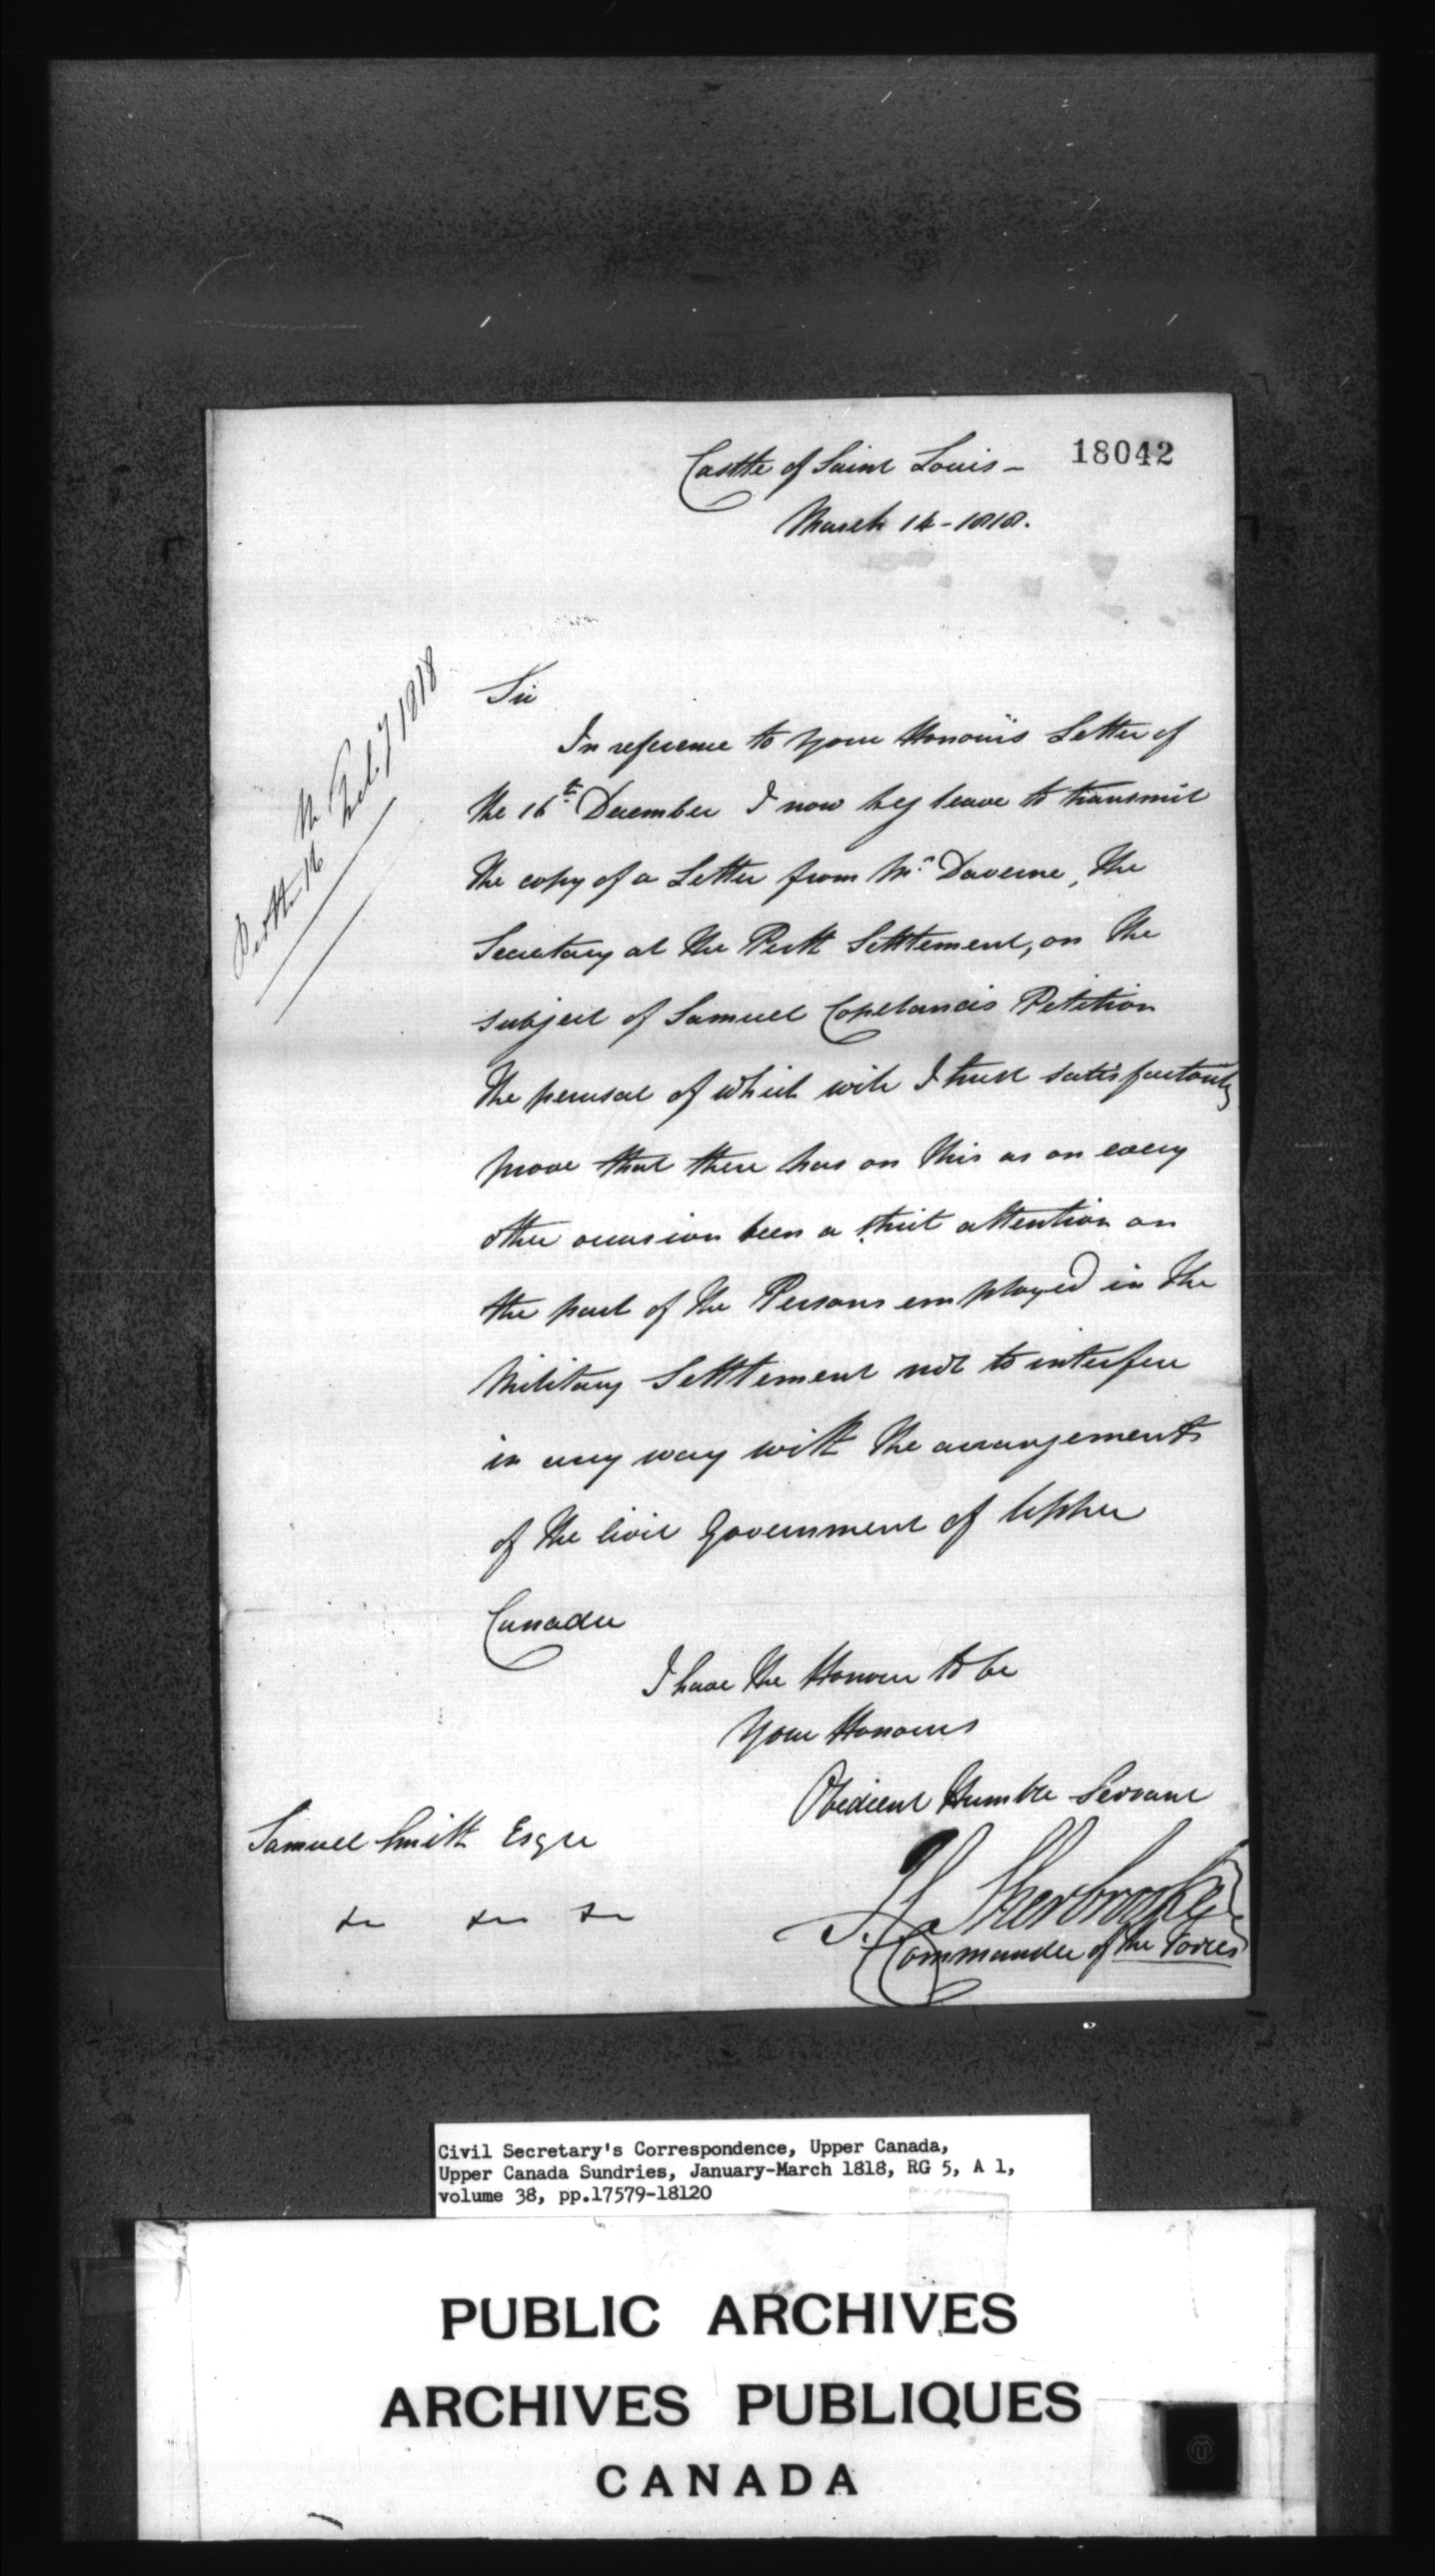 18042
Castle of Saint Louis -
March 14 - 1818.
Sir
In reference to your Honour's Letter of
the 16th December I now beg leave to transmit
the copy of a Letter from Mr. Daverne, the
Secretary at the Perth Settlement, on the
subject of Samuel Copeland's Petition
the perusal of which will I trust satisfactorily
prove that there has on this as on every
other occasion been a strict attention on
the part of the Persons employed in the
Military Settlement not to interfere
in any way with the arrangements
of the Civil Government of Upper
Canada
I have the Honour to be
Your Honours
Obedient Humble Servant
J. C. Sherbrooke
Commander of the Forces
Samuel Smith Esqre
&c &c &c
Perth 16
Feby 1818
Civil Secretary's Correspondence, Upper Canada,
Upper Canada Sundries, January-March 1818, RG 5, A 1,
volume 38, pp.17579-18120
PUBLIC ARCHIVES
ARCHIVES PUBLIQUES
CANADA